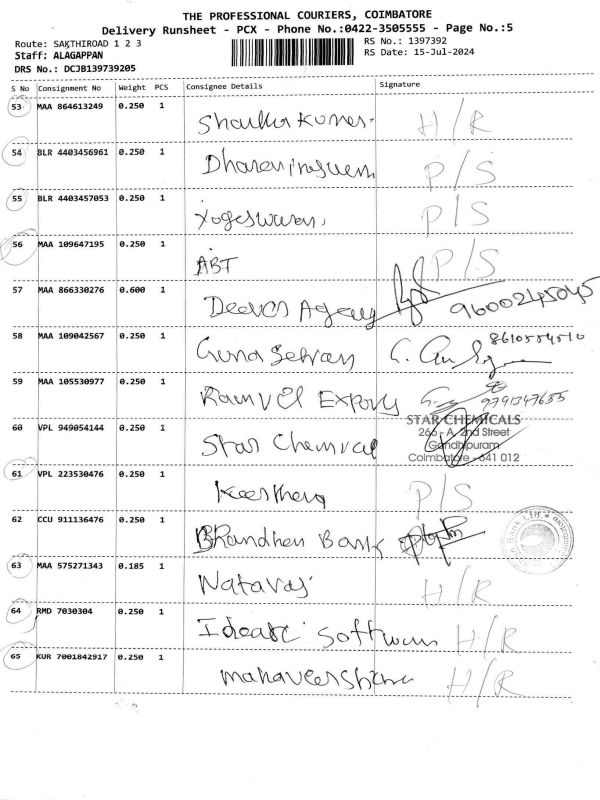 THE PROFESSIONAL COURIERS, COIMBATORE
Delivery Runsheet - PCX - Phone No.:0422-3505555 - Page No.:5
Route: SAKTHIROAD 1 2 3 RS No.: 1397392
Staff: ALAGAPPAN RS Date: 15-Jul-2024
DRS No.: DCJB139739205
S No Consignment No Weight PCS Consignee Details Signature
53 MAA 864613249 0.250 1 H/R
54 BLR 4403456961 0.250 1 P/S
55 BLR 4403457053 0.250 1 Yogeswaran, P/S
56 MAA 109647195 0.250 1 ABT P/S
57 MAA 866330276 0.600 1 9600245045
58 MAA 109042567 0.250 1 Guna Selvan 8610554510
59 MAA 105530977 0.250 1 Ramvel Exports 9791347655
60 VPL 949054144 0.250 1 Star Chemical STAR CHEMICALS
265 - A, 2nd Street
Gandhipuram
Coimbatore - 641 012
61 VPL 223530476 0.250 1 P/S
62 CCU 911136476 0.250 1 Bandhan Bank
63 MAA 575271343 0.185 1 Nataraj H/R
64 RMD 7030304 0.250 1 H/R
65 KUR 7001842917 0.250 1 H/R